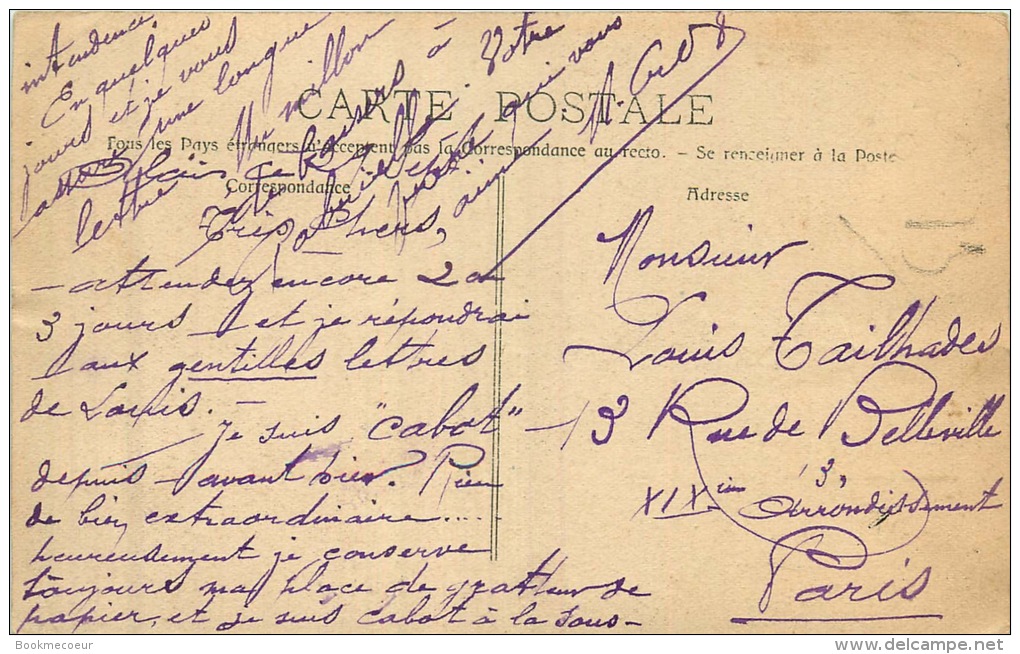 CARTE POSTALE
Tous les Pays étrangers n'acceptent pas la Correspondance au recto. - Se renseigner à la Poste
Correspondance
Très chers,
- attendez encore 2 ou
3 jours et je répondrai
aux gentilles lettres
de Louis. -
Je suis "cabot"
depuis avant hier. Rien
de bien extraordinaire....
heureusement je conserve
toujours ma place de gratteur de
papier, et je suis cabot à la sous-
intendance.
En quelques
jours et je vous
une longue
lettre
Un million
de baisers à
Votre
qui vous
Adresse
Monsieur
Louis Tailhades
13 Rue de Belleville
XIX ième Arrondissement
Paris
Bookmecoeur
delcampe.net